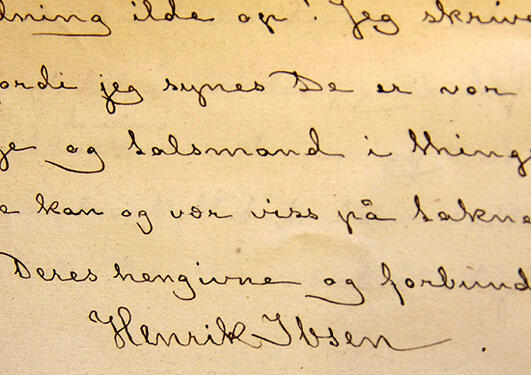 dning ilde op! Jeg skriv
ordi jeg synes De er vor
ge og talsmand i thing
e kan og vær viss på takne
Deres hengivne og forbund
Henrik Ibsen.